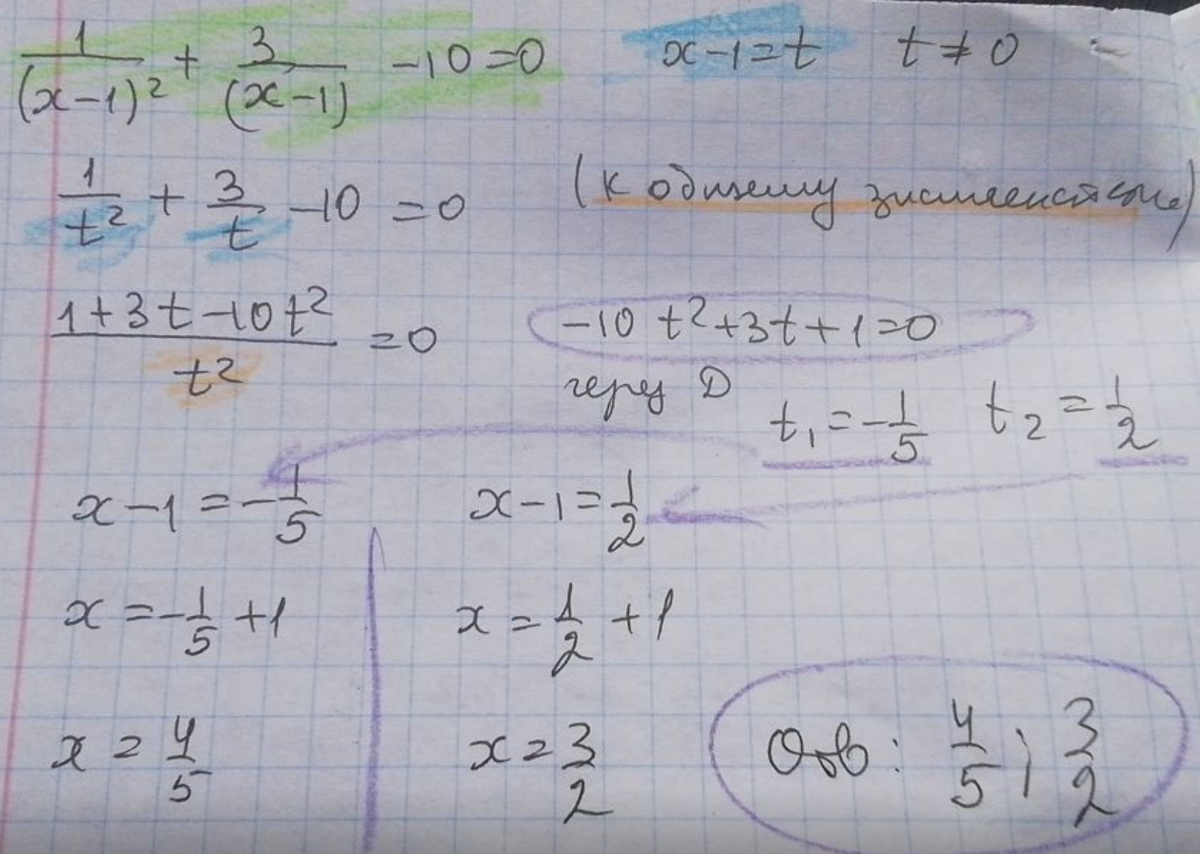 1/(x-1)² + 3/(x-1) -10=0 x-1=t t≠0
1/t² + 3/t -10 =0 (к общему
(1+3t-10t²)/t² =0 -10t²+3t+1=0
через D t₁=-1/5 t₂=1/2
x-1=-1/5 x-1=1/2
x=-1/5+1 x=1/2+1
x=4/5 x=3/2 Отв: 4/5; 3/2